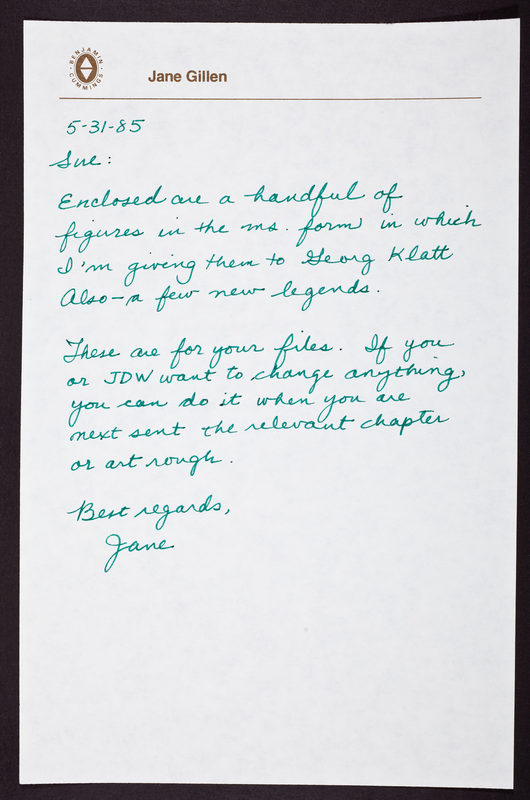 BENJAMIN CUMMINGS
Jane Gillen
5-31-85
Sue:
Enclosed are a handful of
figures in the ms. form in which
I'm giving them to Georg Klatt
Also-a few new legends.
These are for your files. If you
or JDW want to change anything,
you can do it when you are
next sent the relevant chapter
or art rough.
Best regards,
Jane